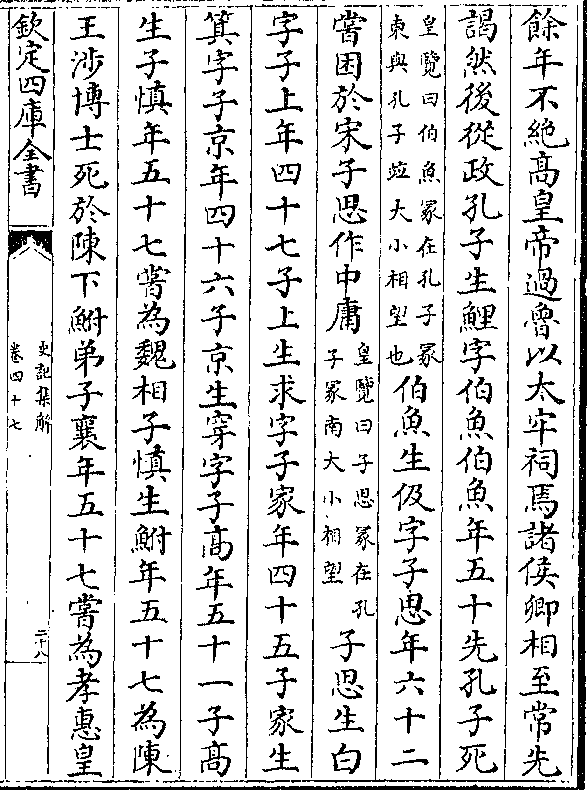 餘年不絶髙皇帝過魯以太牢祠焉諸侯卿相至常先
謁然後從政孔子生鯉字伯魚伯魚年五十先孔子死
皇覽曰伯魚冢在孔子冢
東與孔子竝大小相望也
伯魚生伋字子思年六十二
嘗困於宋子思作中庸
皇覽曰子思冢在孔
子冢南大小相望
子思生白
字子上年四十七子上生求字子家年四十五子家生
箕字子京年四十六子京生穿字子髙年五十一子髙
生子慎年五十七嘗為魏相子慎生鮒年五十七為陳
王涉博士死於陳下鮒弟子襄年五十七嘗為孝惠皇
欽定四庫全書
史記集解
卷四十七
二十八